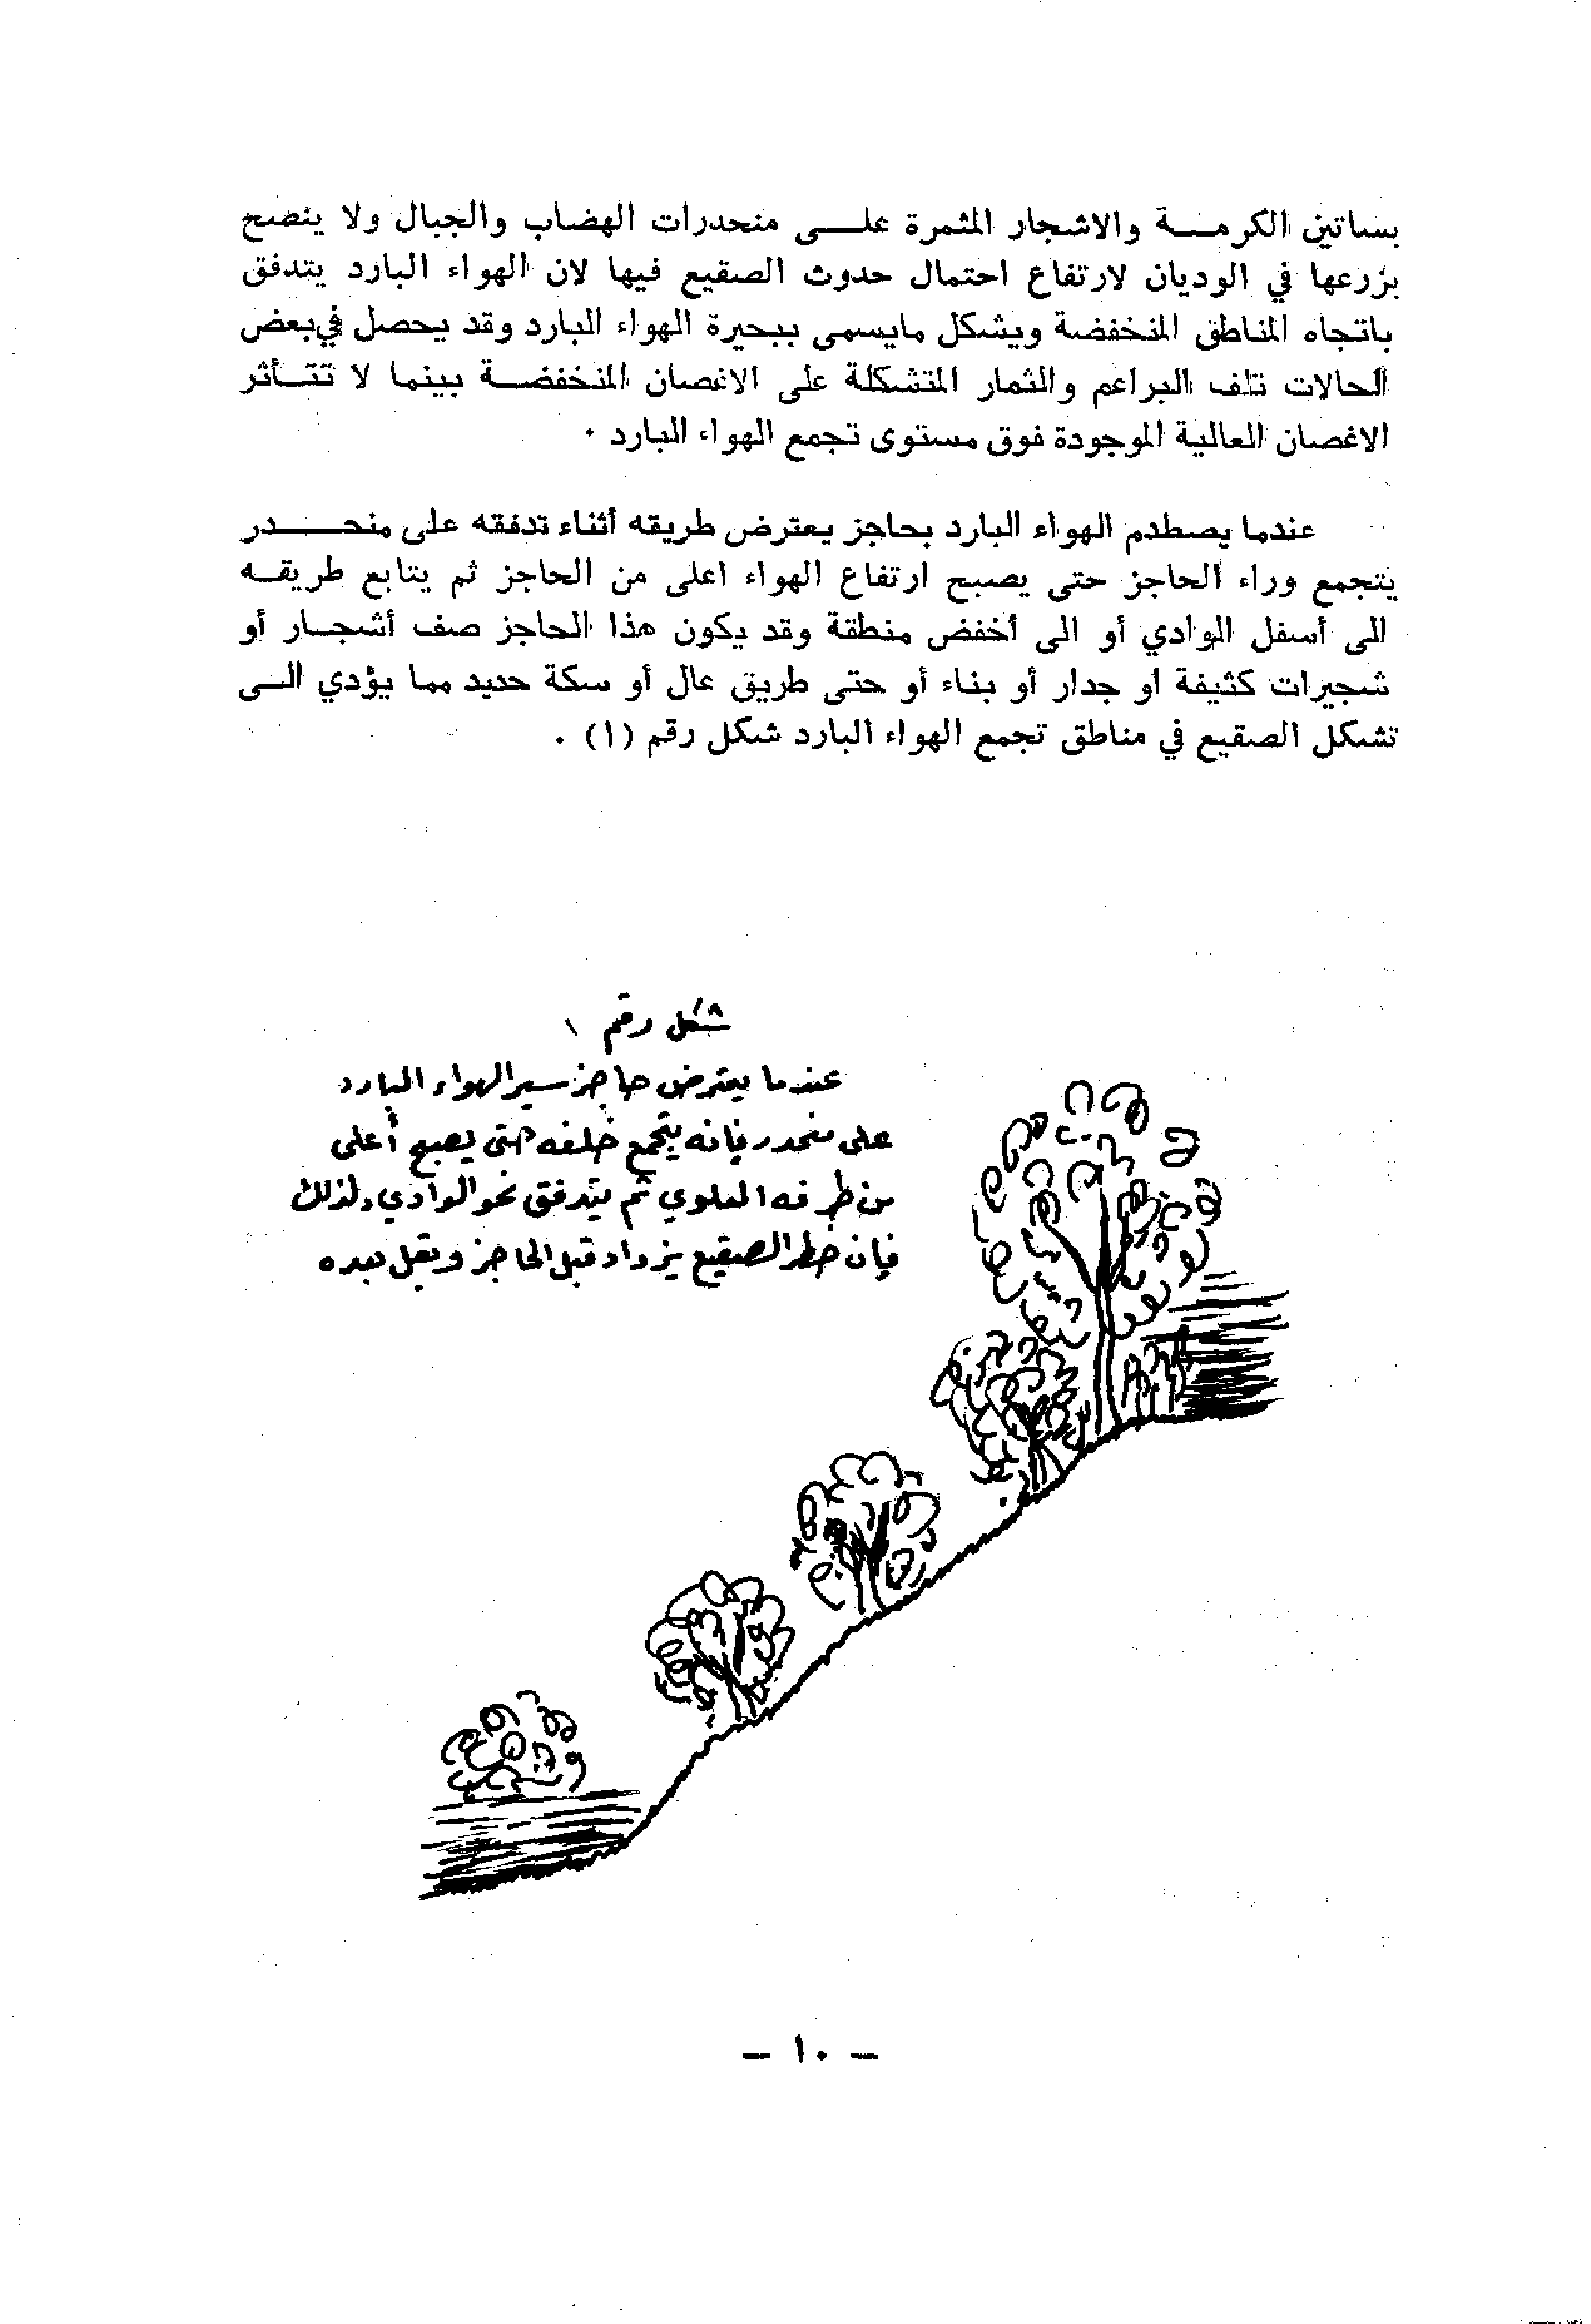 بساتين الكرمة والاشجار المثمرة على منحدرات الهضاب والجبال ولا ينصح
بزرعها في الوديان لارتفاع احتمال حدوث الصقيع فيها لان الهواء البارد يتدفق
باتجاه المناطق المنخفضة ويشكل مايسمى ببحيرة الهواء البارد وقد يحصل في بعض
الحالات تلف البراعم والثمار المتشكلة على الاغصان المنخفضة بينما لا تتأثر
الاغصان العالية الموجودة فوق مستوى تجمع الهواء البارد ٠
عندما يصطدم الهواء البارد بحاجز يعترض طريقه أثناء تدفقه على منحدر
يتجمع وراء الحاجز حتى يصبح ارتفاع الهواء اعلى من الحاجز ثم يتابع طريقه
الى أسفل الوادي أو الى أخفض منطقة وقد يكون هذا الحاجز صف أشجار أو
شجيرات كثيفة او جدار أو بناء أو حتى طريق عال أو سكة حديد مما يؤدي الى
تشكل الصقيع في مناطق تجمع الهواء البارد شكل رقم (١) .
شكل رقم ١
عندما يعترض حاجز سير الهواء البارد
على منحدر فإنه يتجمع خلفه حتى يصبح أعلى
من طرفه العلوي ثم يتدفق نحو الوادي ولذلك
فإن خطر الصقيع يزداد قبل الحاجز ويقل بعده
— ١٠ —